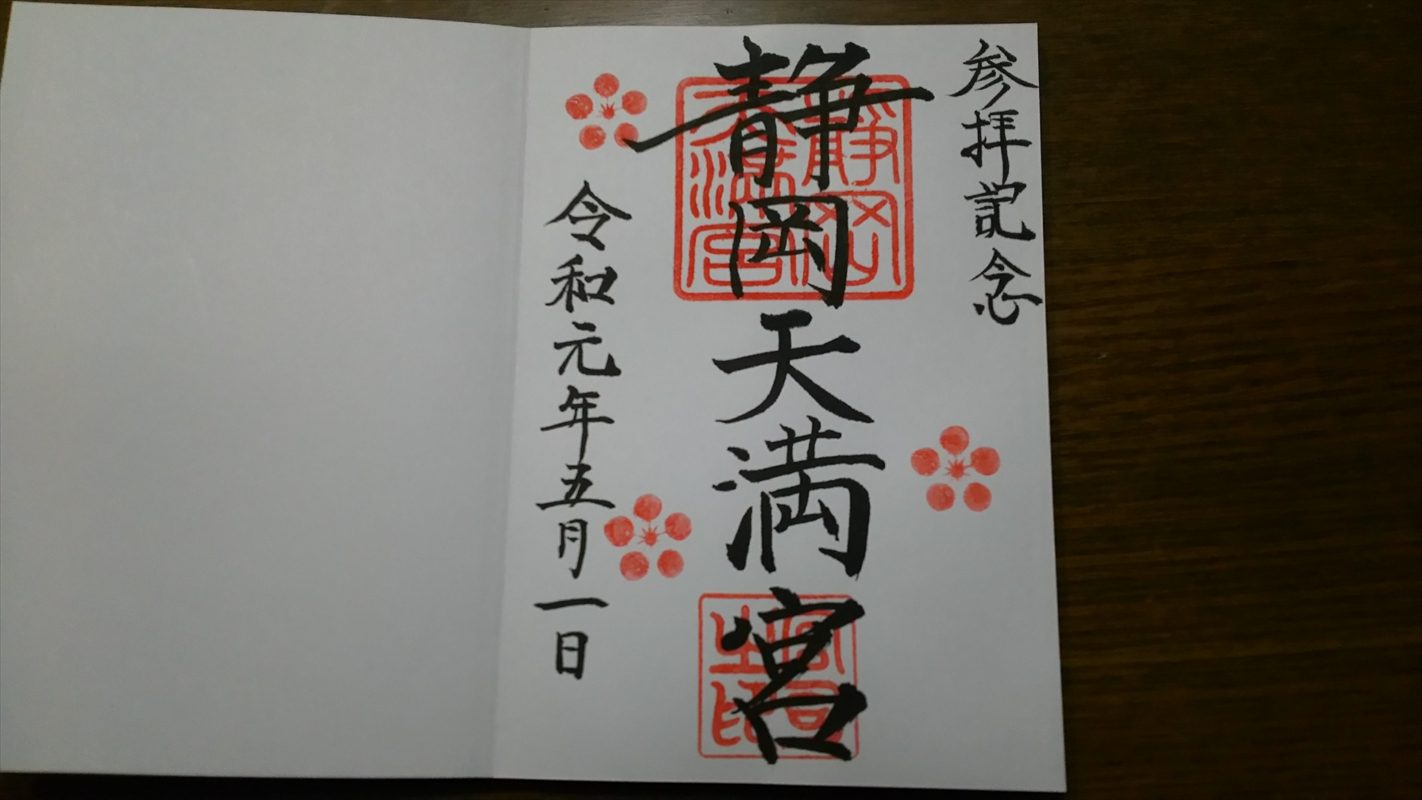 参拝記念
静岡天満宮
令和元年五月一日
静岡天満宮
宮司之印